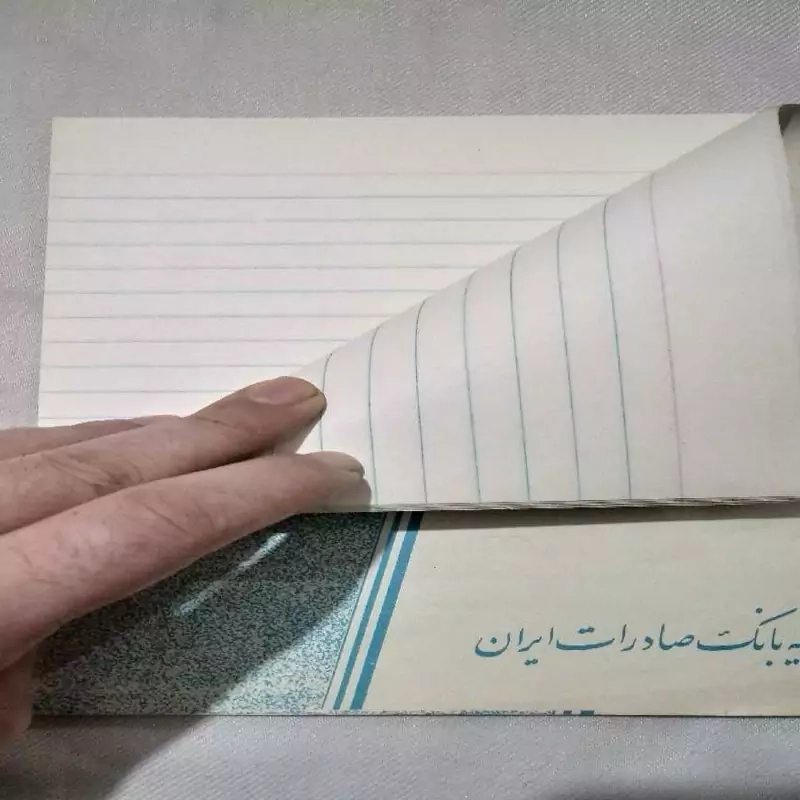 بانک صادرات ایران